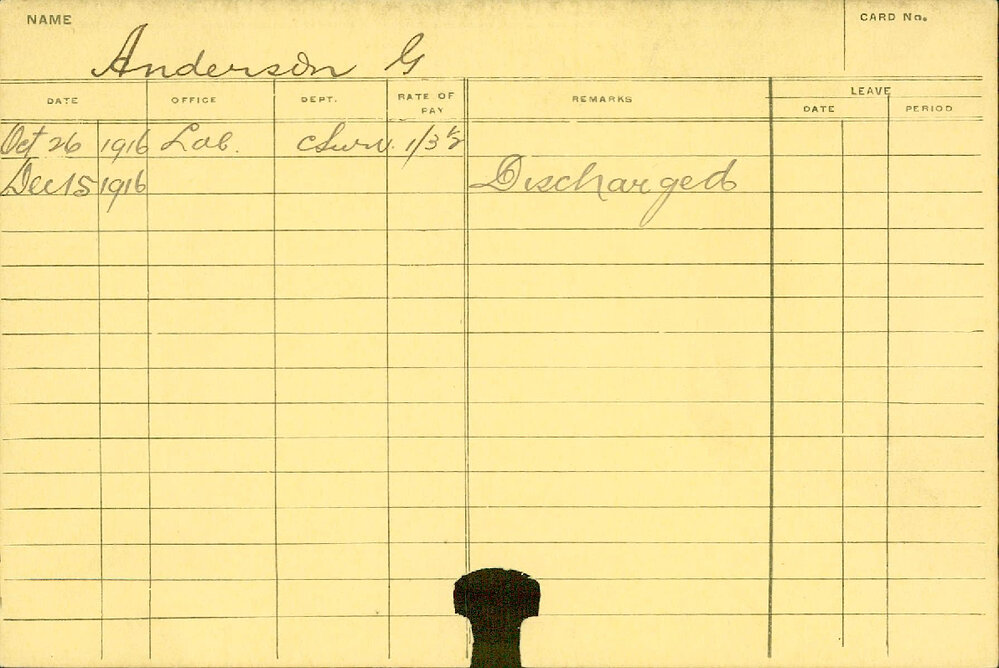 NAME
CARD No.
Anderson G
DATE OFFICE DEPT. RATE OF PAY REMARKS LEAVE
DATE PERIOD
Oct 26 1916 Lab. cSurv. 1/3½
Dec 15 1916 Discharged